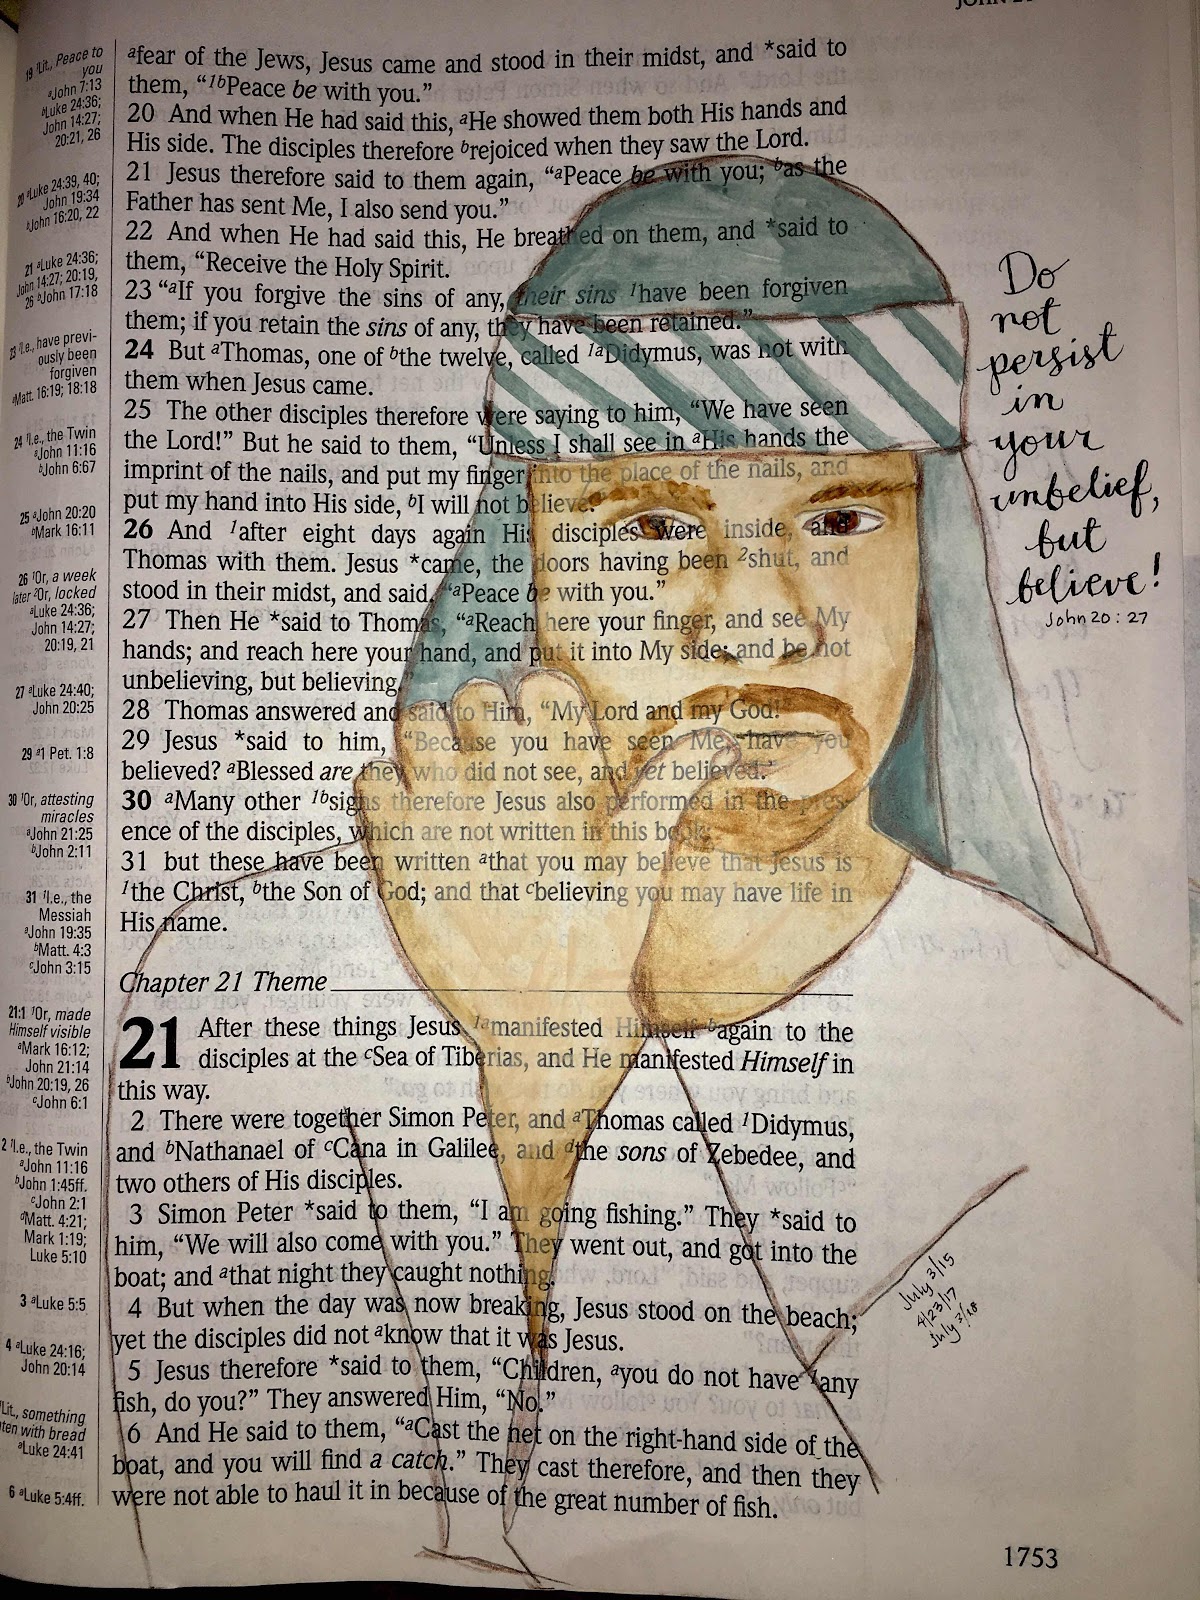 19 ¹Lit., Peace to
you
ᵃJohn 7:13
ᵇLuke 24:36;
John 14:27;
20:21, 26
20 ᵃLuke 24:39, 40;
John 19:34
ᵇJohn 16:20, 22
21 ᵃLuke 24:36;
John 14:27; 20:19,
26 ᵇJohn 17:18
23 ¹I.e., have previ-
ously been
forgiven
ᵃMatt. 16:19; 18:18
24 ¹I.e., the Twin
ᵃJohn 11:16
ᵇJohn 6:67
25 ᵃJohn 20:20
ᵇMark 16:11
26 ¹Or, a week
later ²Or, locked
ᵃLuke 24:36;
John 14:27;
20:19, 21
27 ᵃLuke 24:40;
John 20:25
29 ᵃ1 Pet. 1:8
30 ¹Or, attesting
miracles
ᵃJohn 21:25
ᵇJohn 2:11
31 ¹I.e., the
Messiah
ᵃJohn 19:35
ᵇMatt. 4:3
ᶜJohn 3:15
21:1 ¹Or, made
Himself visible
ᵃMark 16:12;
John 21:14
ᵇJohn 20:19, 26
ᶜJohn 6:1
2 ¹I.e., the Twin
ᵃJohn 11:16
ᵇJohn 1:45ff.
ᶜJohn 2:1
ᵈMatt. 4:21;
Mark 1:19;
Luke 5:10
3 ᵃLuke 5:5
4 ᵃLuke 24:16;
John 20:14
Lit., something
with bread
ᵃLuke 24:41
6 ᵃLuke 5:4ff.
ᵃfear of the Jews, Jesus came and stood in their midst, and *said to
them, “¹ᵇPeace be with you.”
20 And when He had said this, ᵃHe showed them both His hands and
His side. The disciples therefore ᵇrejoiced when they saw the Lord.
21 Jesus therefore said to them again, “ᵃPeace be with you; ᵇas the
Father has sent Me, I also send you.”
22 And when He had said this, He breathed on them, and *said to
them, “Receive the Holy Spirit.
23 “ᵃIf you forgive the sins of any, their sins ¹have been forgiven
them; if you retain the sins of any, they have been retained.”
24 But ᵃThomas, one of ᵇthe twelve, called ¹ᵃDidymus, was not with
them when Jesus came.
25 The other disciples therefore were saying to him, “We have seen
the Lord!” But he said to them, “Unless I shall see in ᵃHis hands the
imprint of the nails, and put my finger into the place of the nails, and
put my hand into His side, ᵇI will not believe.”
26 And ¹after eight days again His disciples were inside, and
Thomas with them. Jesus *came, the doors having been ²shut, and
stood in their midst, and said, “ᵃPeace be with you.”
27 Then He *said to Thomas, “ᵃReach here your finger, and see My
hands; and reach here your hand, and put it into My side; and be not
unbelieving, but believing.”
28 Thomas answered and said to Him, “My Lord and my God!”
29 Jesus *said to him, “Because you have seen Me, have you
believed? ᵃBlessed are they who did not see, and yet believed.”
30 ᵃMany other ¹ᵇsigns therefore Jesus also performed in the pres-
ence of the disciples, which are not written in this book;
31 but these have been written ᵃthat you may believe that Jesus is
¹the Christ, ᵇthe Son of God; and that ᶜbelieving you may have life in
His name.
Chapter 21 Theme
21 After these things Jesus ¹ᵃmanifested Himself ᵇagain to the
disciples at the ᶜSea of Tiberias, and He manifested Himself in
this way.
2 There were together Simon Peter, and ᵃThomas called ¹Didymus,
and ᵇNathanael of ᶜCana in Galilee, and ᵈthe sons of Zebedee, and
two others of His disciples.
3 Simon Peter *said to them, “I am going fishing.” They *said to
him, “We will also come with you.” They went out, and got into the
boat; and ᵃthat night they caught nothing.
4 But when the day was now breaking, Jesus stood on the beach;
yet the disciples did not ᵃknow that it was Jesus.
5 Jesus therefore *said to them, “Children, ᵃyou do not have ¹any
fish, do you?” They answered Him, “No.”
6 And He said to them, “ᵃCast the net on the right-hand side of the
boat, and you will find a catch.” They cast therefore, and then they
were not able to haul it in because of the great number of fish.
Do
not
persist
in
your
unbelief,
but
believe!
John 20:27
July 3/15
4/23/17
July 3/18
1753